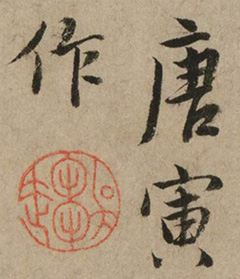 唐寅
作